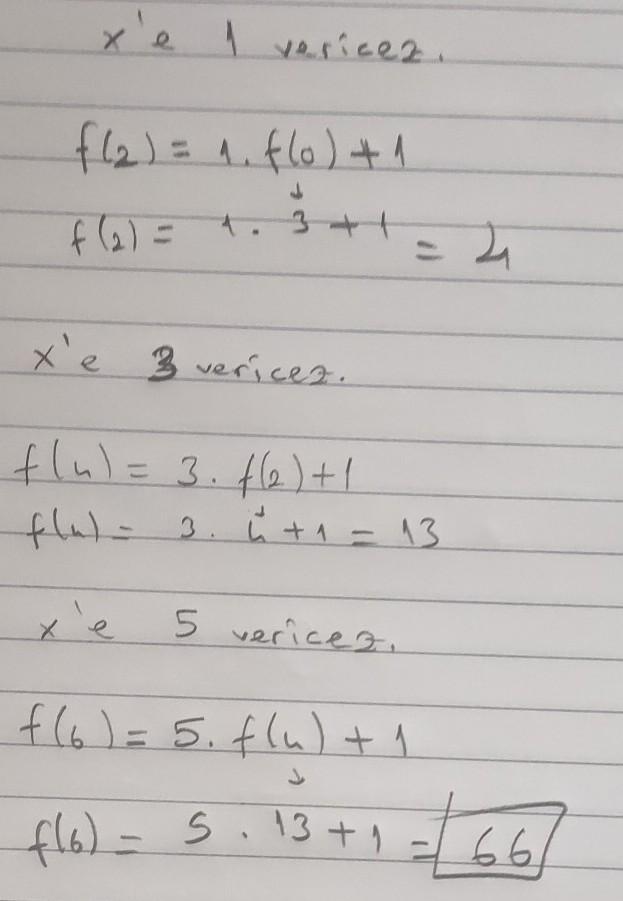 x'e 1 vericez.
f(2) = 1. f(0) + 1
↓
f(2) = 1. 3 + 1 = 4
x'e 3 vericez.
f(4) = 3. f(2) + 1
↓
f(4) = 3. 4 + 1 = 13
x'e 5 vericez.
f(6) = 5. f(4) + 1
↓
f(6) = 5 . 13 + 1 = 66